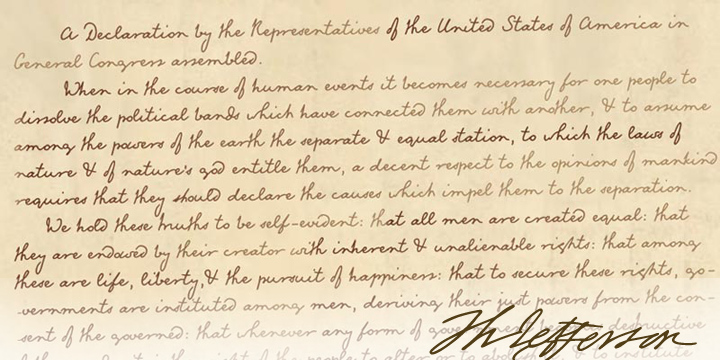 A Declaration by the Representatives of the United States of America in
General Congress assembled.
When in the course of human events it becomes necessary for one people to
dissolve the political bands which have connected them with another, & to assume
among the powers of the earth the separate & equal station, to which the laws of
nature & of nature's god entitle them, a decent respect to the opinions of mankind
requires that they should declare the causes which impel them to the separation.
We hold these truths to be self-evident: that all men are created equal: that
they are endowed by their creator with inherent & unalienable rights: that among
these are life, liberty, & the pursuit of happiness: that to secure these rights, go-
vernments are instituted among men, deriving their just powers from the con-
sent of the governed: that whenever any form of government destructive
the people to alter or to abolish & to institute
Th Jefferson